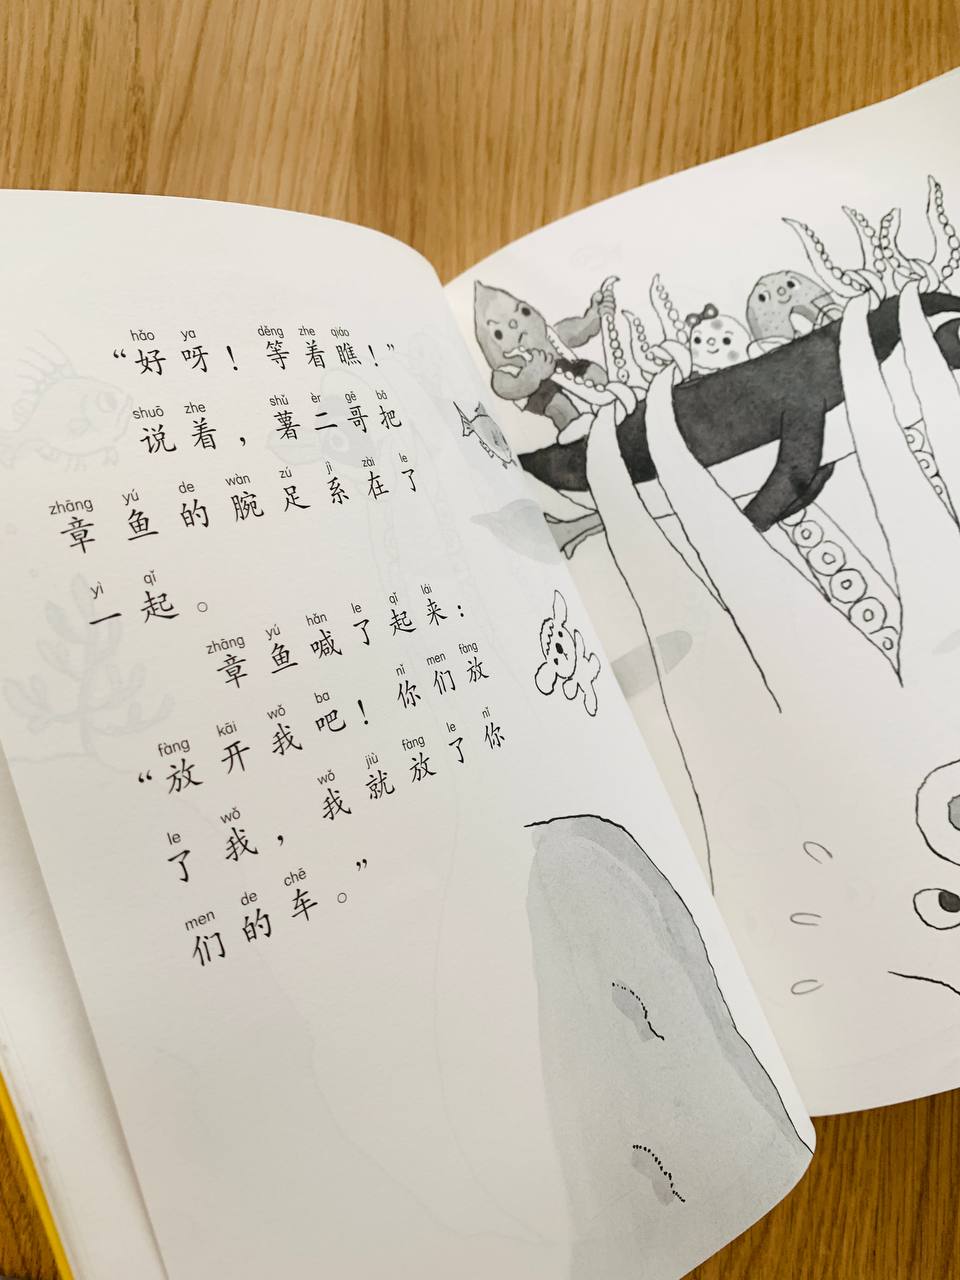 hǎo ya děng zhe qiáo
“好呀！等着瞧！”
shuō zhe shǔ èr gē bǎ
说着，薯二哥把
zhāng yú de wàn zú jì zài le
章鱼的腕足系在了
yì qǐ
一起。
zhāng yú hǎn le qǐ lái
章鱼喊了起来：
fàng kāi wǒ ba nǐ men fàng
“放开我吧！你们放
le wǒ wǒ jiù fàng le nǐ
了我，我就放了你
men de chē
们的车。”